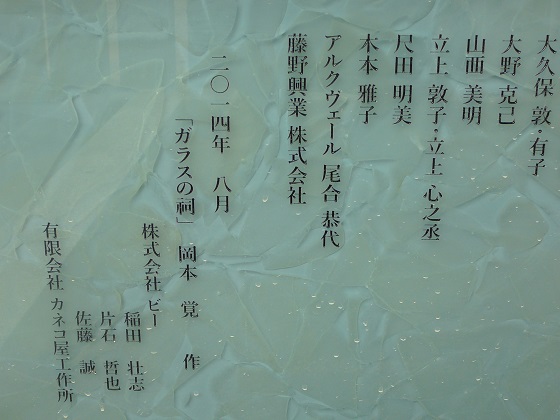 大久保 敦・有子
大野 克己
山画 美明
立上 敦子・立上 心之丞
尺田 明美
木本 雅子
アルクヴェール 尾合 恭代
藤野興業 株式会社
二〇一四年 八月
「ガラスの祠」 岡本 覚 作
株式会社 ビー
稲田 壮志
片石 哲也
佐藤 誠
有限会社 カネコ屋工作所